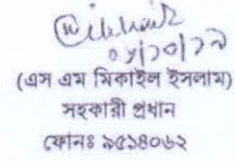 (এস এম মিকাইল ইসলাম)
সহকারী প্রধান
ফোনঃ ৯৫১৪০৬২